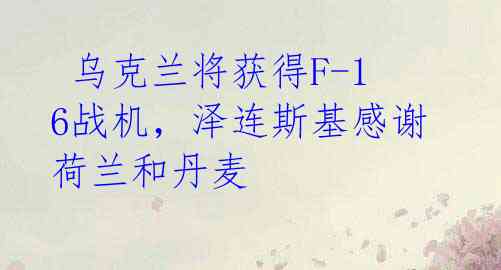 乌克兰将获得F-1
6战机，泽连斯基感谢
荷兰和丹麦